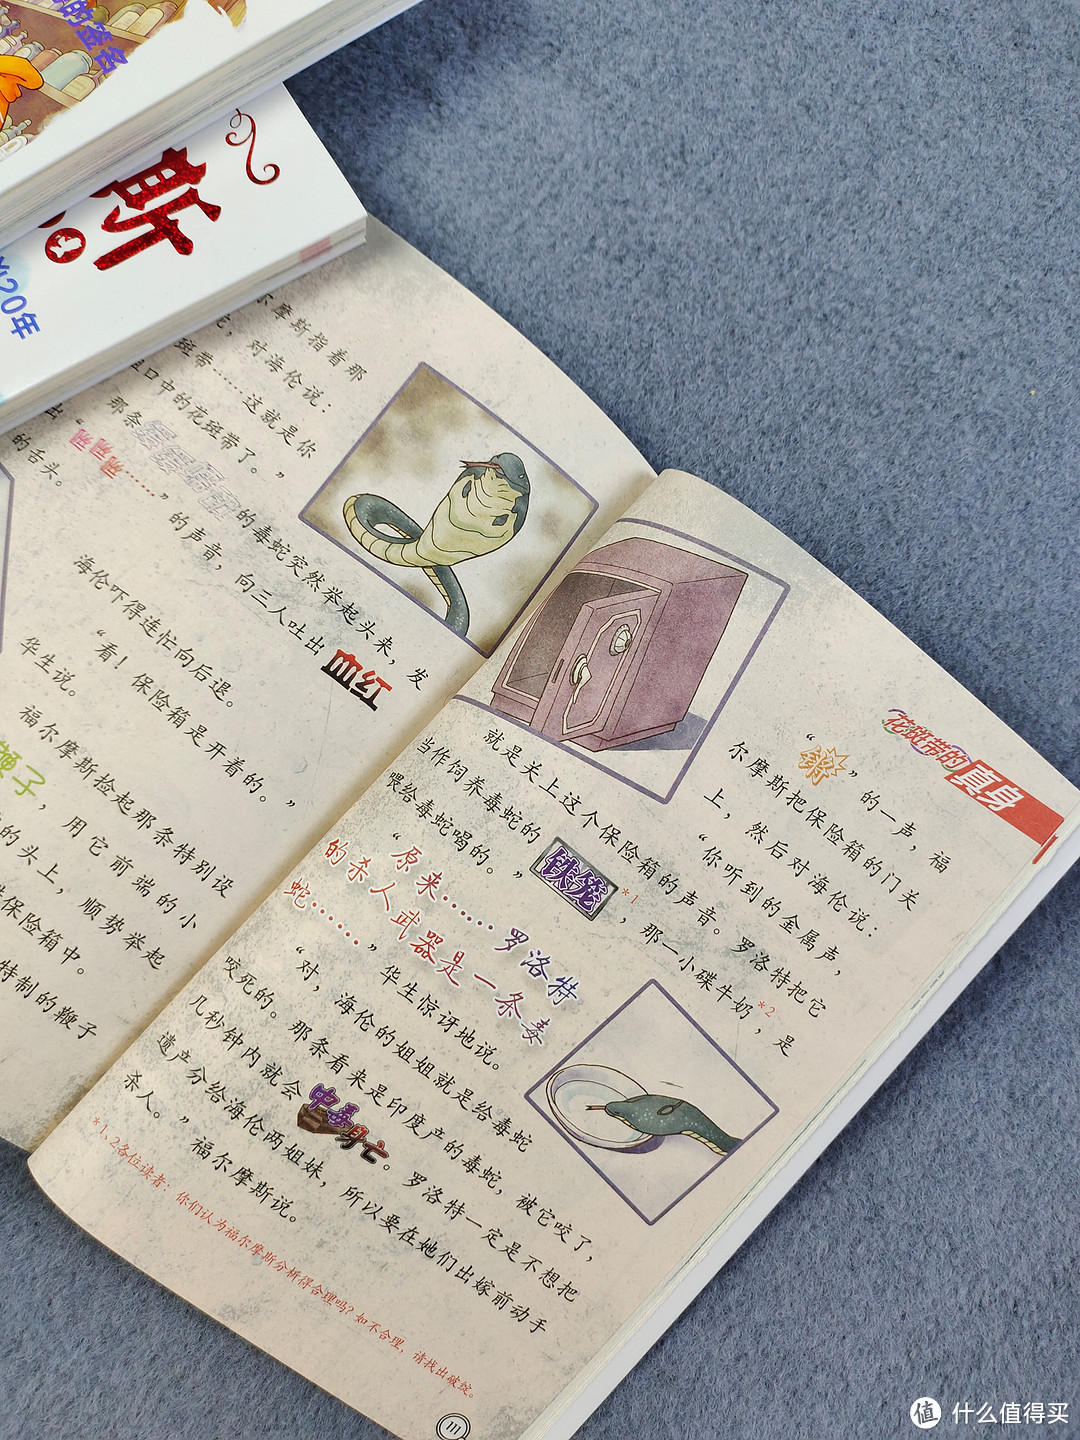 的签名
斯
20年
尔摩斯指着那
，对海伦说：
斑带……这就是你
口中的花斑带了。”
那条缓缓移动的毒蛇突然举起头来，发
出“咝咝咝……”的声音，向三人吐出血红
的舌头。
海伦吓得连忙向后退。
“看！保险箱是开着的。”
华生说。
福尔摩斯捡起那条特别设
鞭子，用它前端的小
的头上，顺势举起
保险箱中。
特制的鞭子
花斑带的真身
“锵”的一声，福
尔摩斯把保险箱的门关
上，然后对海伦说：
“你听到的金属声，
就是关上这个保险箱的声音。罗洛特把它
当作饲养毒蛇的铁笼*1，那一小碟牛奶*2，是
喂给毒蛇喝的。”
“原来……罗洛特
的杀人武器是一条毒
蛇……”华生惊讶地说。
“对，海伦的姐姐就是给毒蛇
咬死的。那条看来是印度产的毒蛇，被它咬了，
几秒钟内就会中毒身亡。罗洛特一定是不想把
遗产分给海伦两姐妹，所以要在她们出嫁前动手
杀人。”福尔摩斯说。
*1、2各位读者：你们认为福尔摩斯分析得合理吗？如不合理，请找出破绽。
111
值 什么值得买